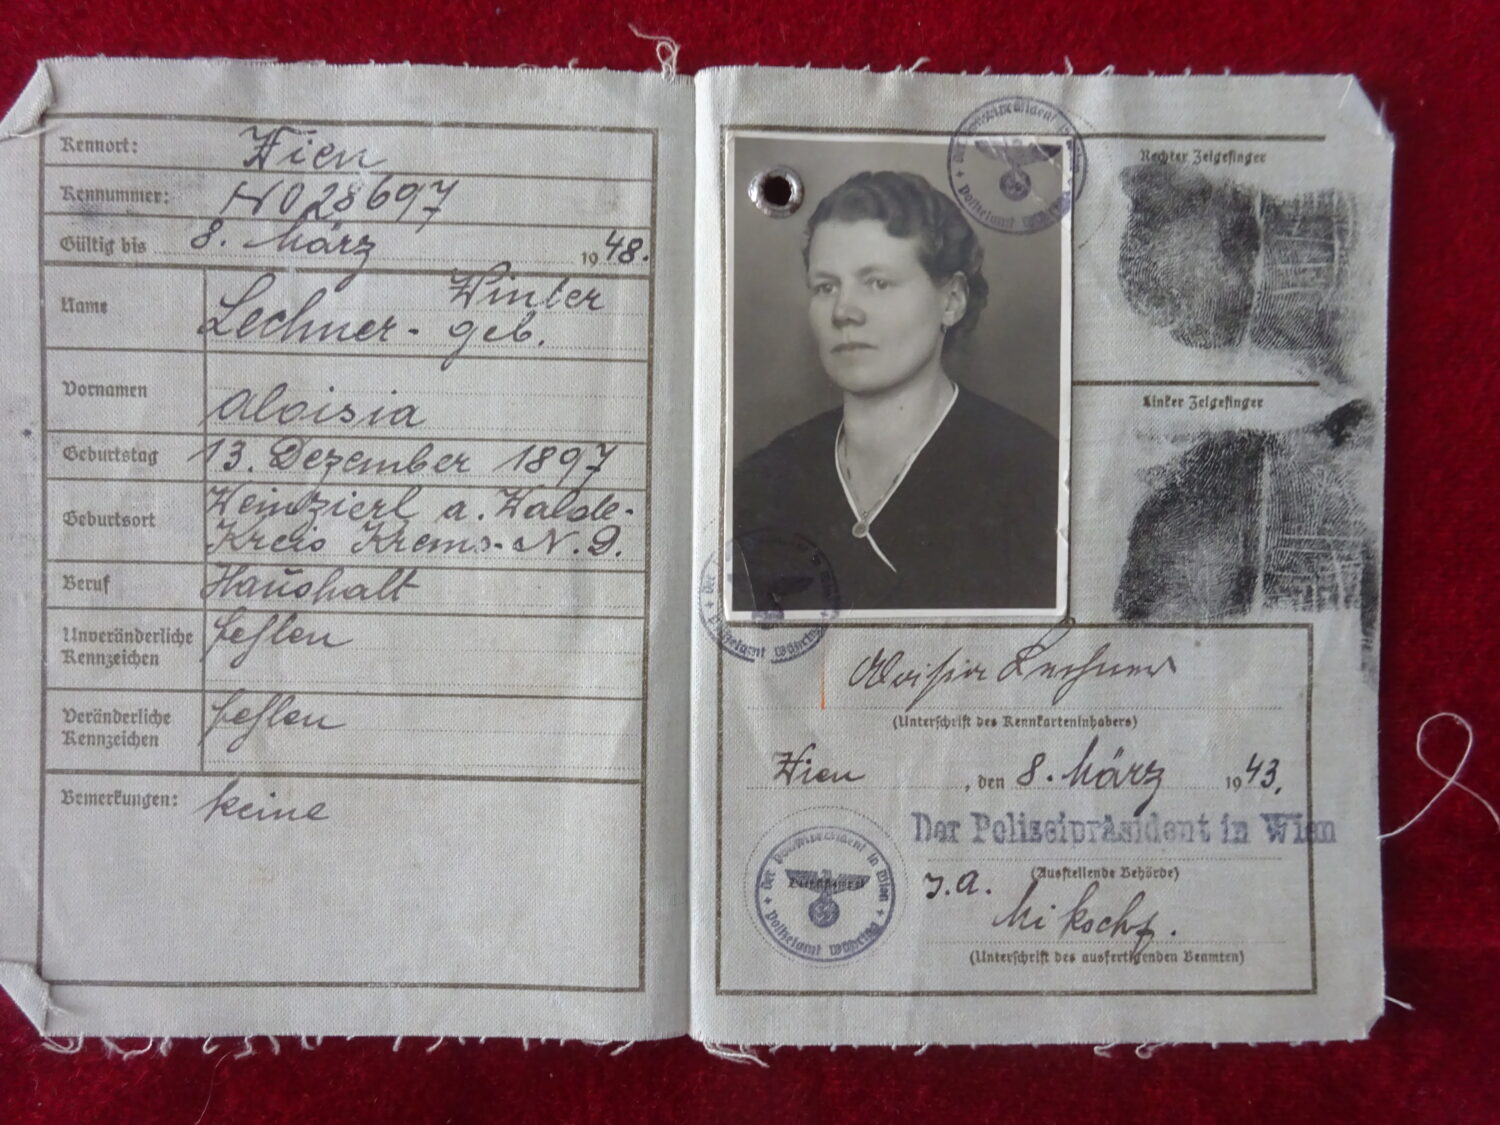 Kennort: Wien
Kennummer: H028697
Gültig bis 8. März 1948.
Name Lechner- geb. Winter
Vornamen Aloisia
Geburtstag 13. Dezember 1897
Geburtsort Weinzierl a. Walde-
Kreis Krems-N.D.
Beruf Haushalt
Unveränderliche Kennzeichen fehlen
Veränderliche Kennzeichen fehlen
Bemerkungen: keine
Rechter Zeigefinger
Linker Zeigefinger
Aloisia Lechner
(Unterschrift des Kennkarteninhabers)
Wien, den 8. März 1943.
Der Polizeipräsident in Wien
(Ausstellende Behörde)
J.A.
(Unterschrift des ausfertigenden Beamten)
Der Polizeipräsident in Wien
Polizeiamt Währing